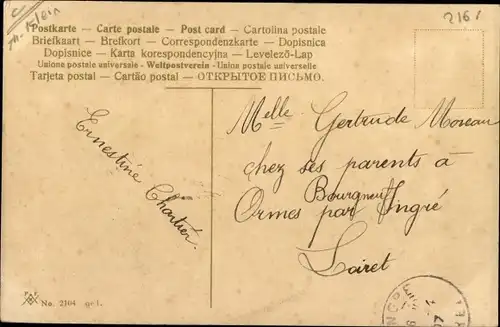 2161
Postkarte — Carte postale — Post card — Cartolina postale
Briefkaart — Brefkort — Correspondenzkarte — Dopisnica
Dopisnice — Karta korespondencyjna — Levelező-Lap
Unione postale universale - Weltpostverein - Union postale universelle
Tarjeta postal — Cartão postal — ОТКРЫТОЕ ПИСЬМО.
Ernestine Chartier.
Melle Gertrude Moreau
chez ses parents à
Bourgneuf
Ormes par Ingré
Loiret
No. 2104
07